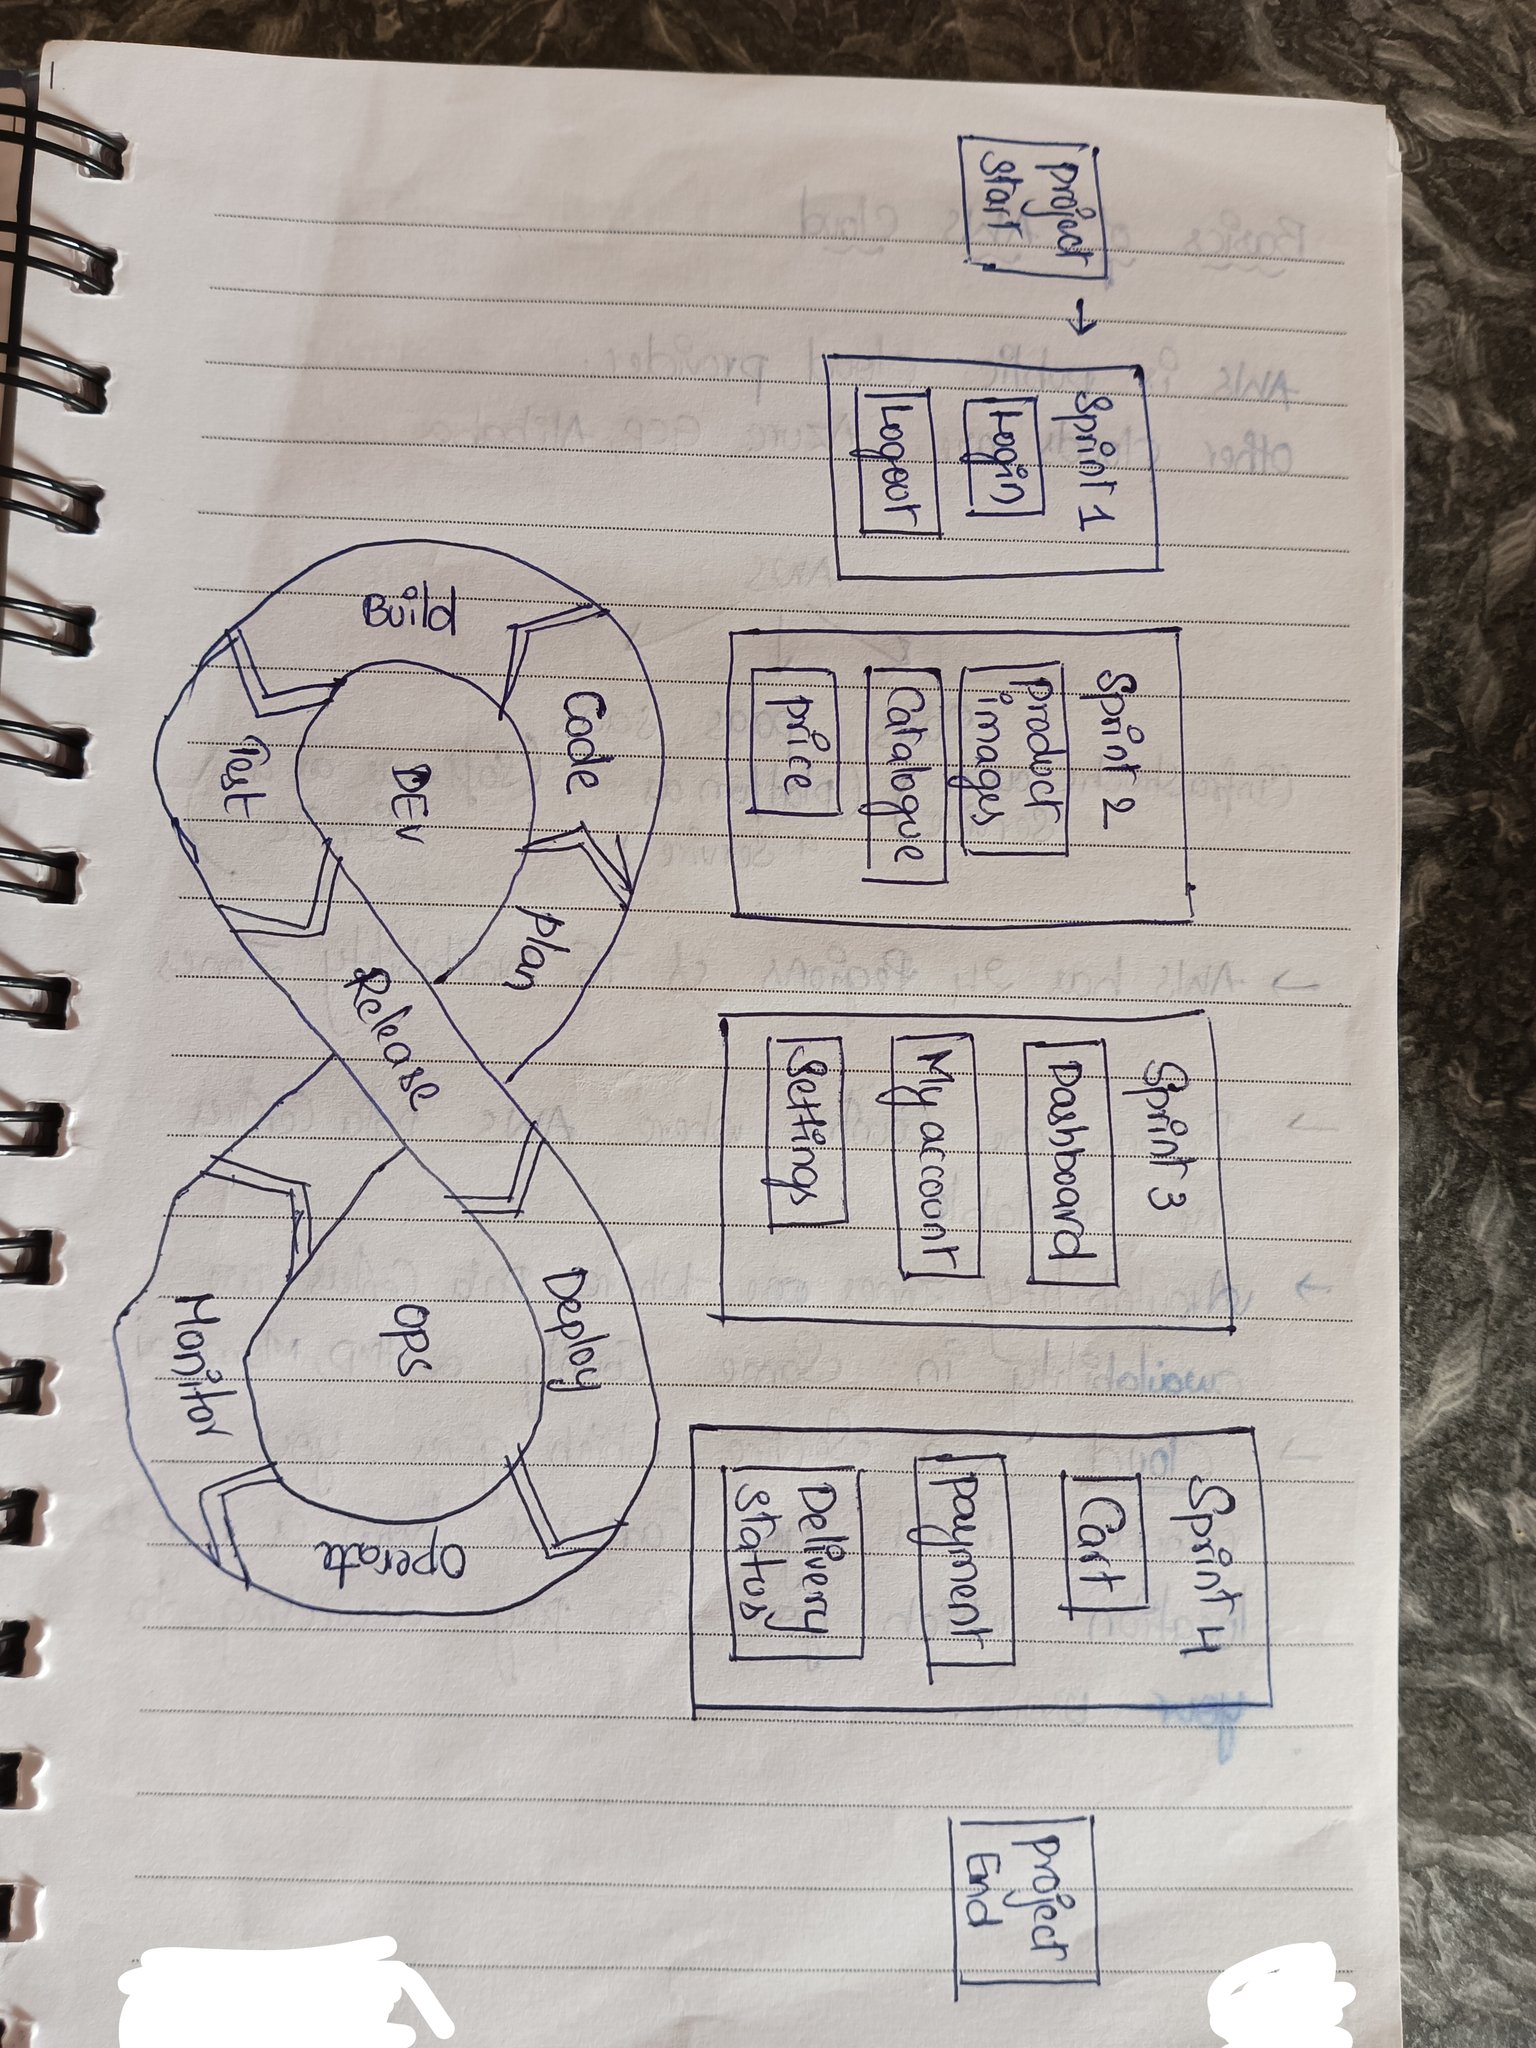 Project
start
→
Sprint 1
Login
Logout
Sprint 2
Product
images
Catalogue
Price
Sprint 3
Dashboard
My account
Settings
Sprint 4
Cart
payment
Delivery
status
Project
End
Code
Plan
Build
DEV
Test
Release
Deploy
OPS
Operate
Monitor